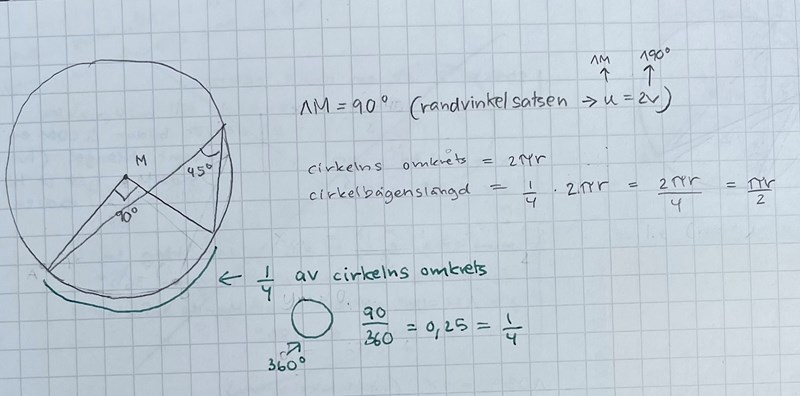 ΛM Λ90°
↑ ↑
ΛM = 90° (randvinkelsatsen → u = 2v)
M
45°
90°
cirkelns omkrets = 2πr
cirkelbågenslängd = 1/4 · 2πr = 2πr/4 = πr/2
A
← 1/4 av cirkelns omkrets
90/360 = 0,25 = 1/4
360°